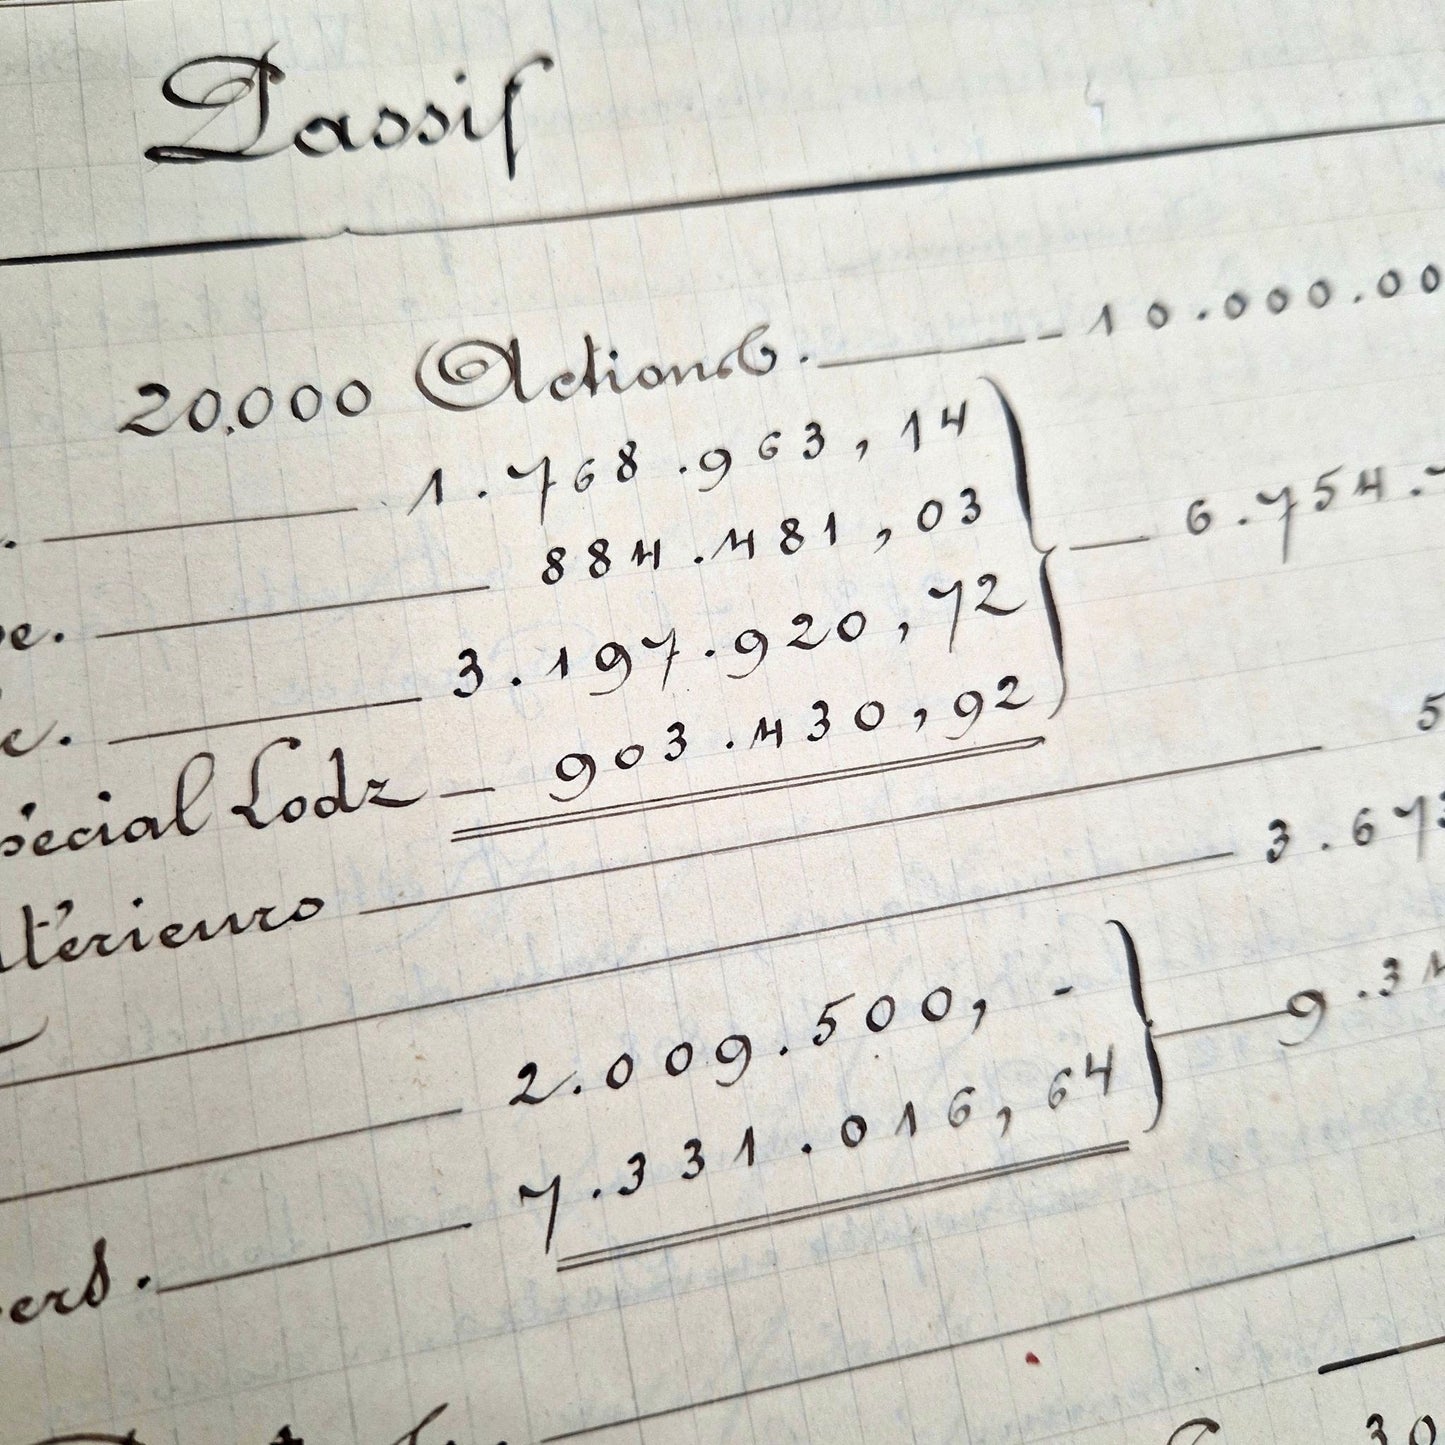 Passif
20.000 Actions. 10.000.00
1.768.963,14
884.481,03 6.754.7
3.197.920,72
pécial Lodz 903.430,92
térieurs 5
3.673
2.009.500,-
7.331.016,64 9.34
ers.
30